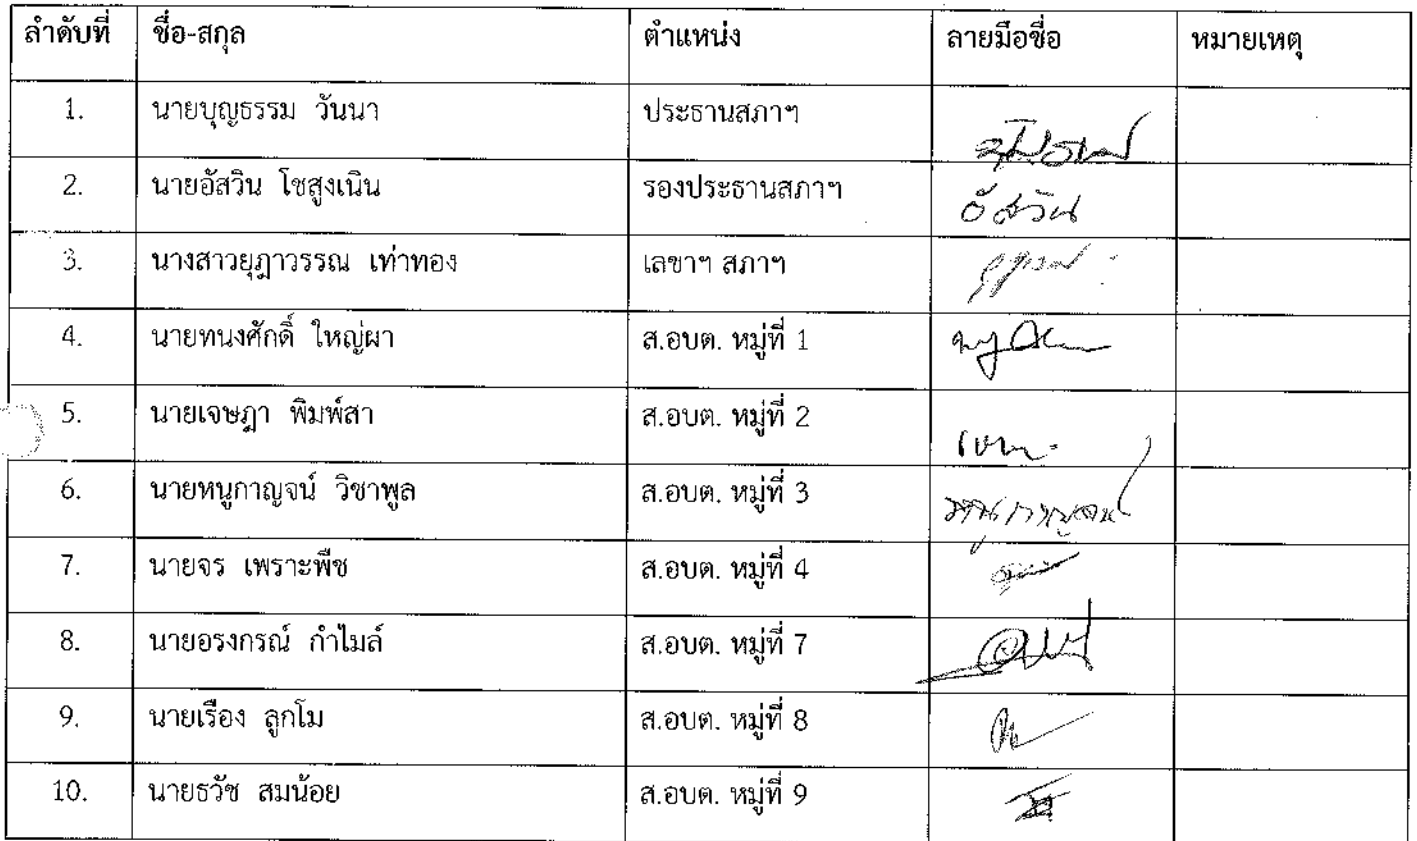 ลำดับที่ ชื่อ-สกุล ตำแหน่ง ลายมือชื่อ หมายเหตุ
1. นายบุญธรรม วันนา ประธานสภาฯ
2. นายอัสวิน โชสูงเนิน รองประธานสภาฯ อัสวิน
3. นางสาวยุฎาวรรณ เท่าทอง เลขาฯ สภาฯ
4. นายทนงศักดิ์ ใหญ่ผา ส.อบต. หมู่ที่ 1
5. นายเจษฎา พิมพ์สา ส.อบต. หมู่ที่ 2
6. นายหนูกาญจน์ วิชาพูล ส.อบต. หมู่ที่ 3 หนูกาญจน์
7. นายจร เพราะพืช ส.อบต. หมู่ที่ 4
8. นายอรงกรณ์ กำไมล์ ส.อบต. หมู่ที่ 7
9. นายเรือง ลูกโม ส.อบต. หมู่ที่ 8
10. นายธวัช สมน้อย ส.อบต. หมู่ที่ 9